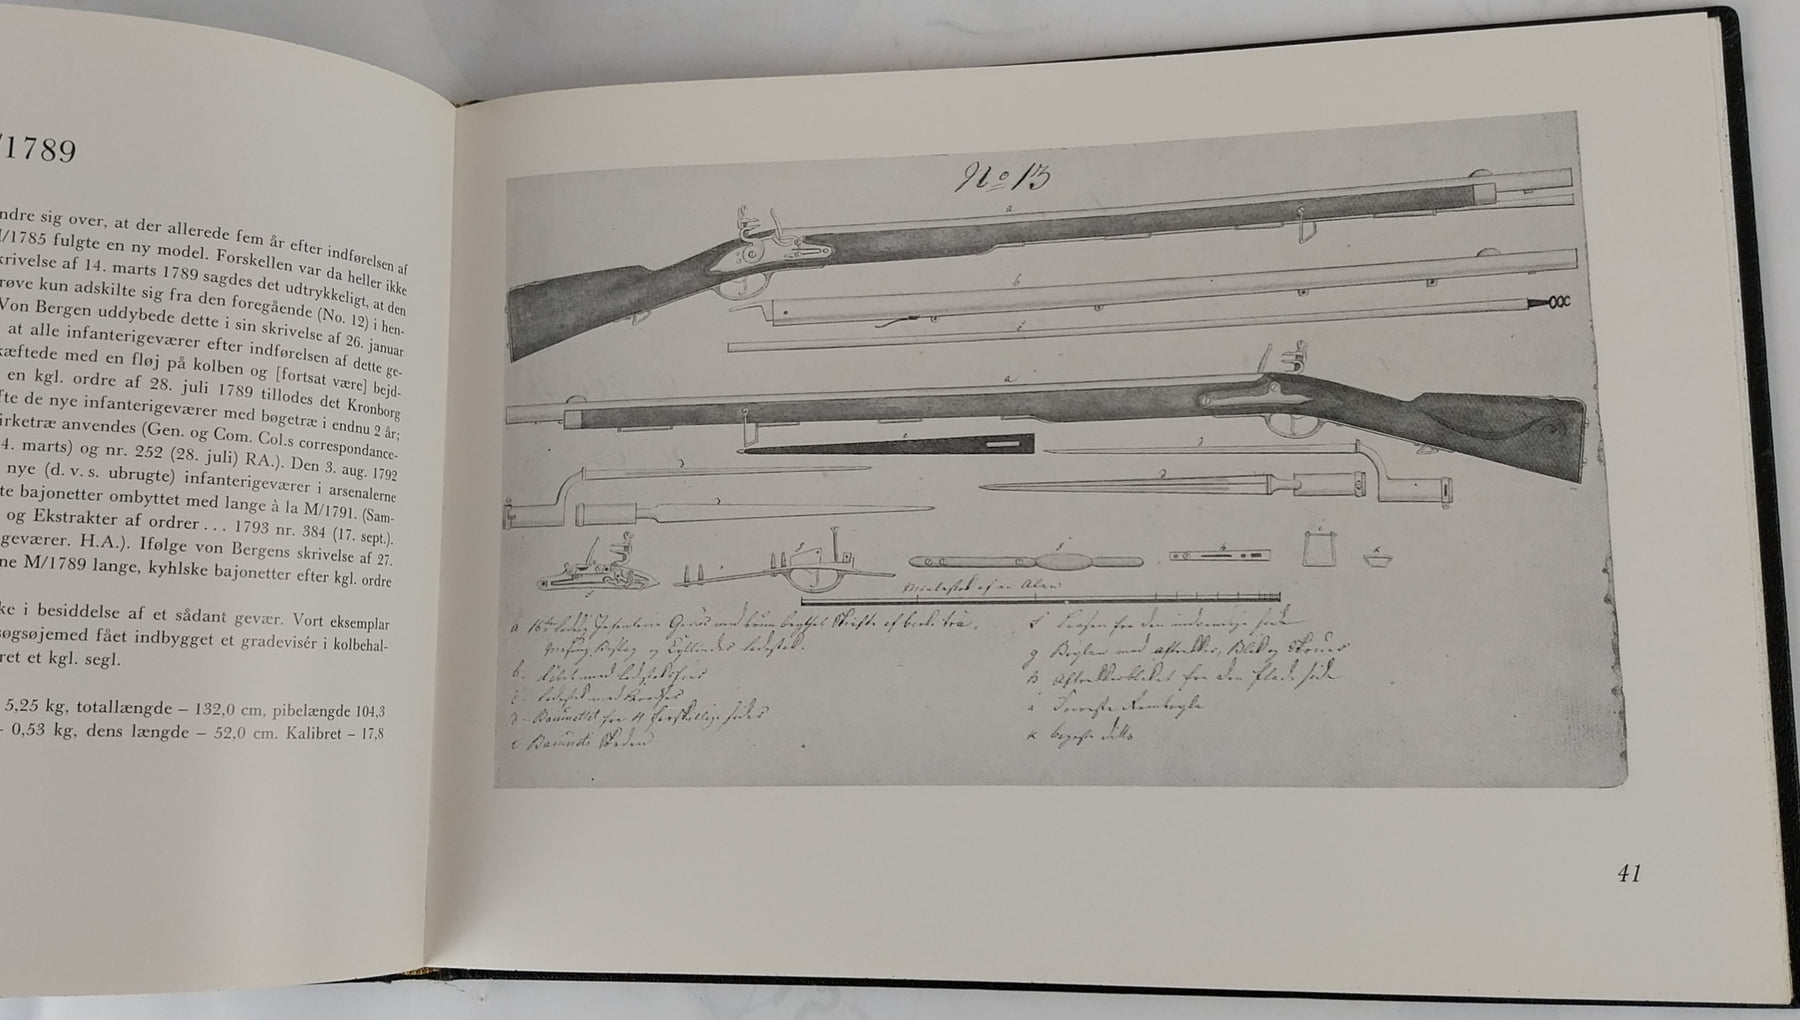 /1789
ndre sig over, at der allerede fem år efter indførelsen af
M/1785 fulgte en ny model. Forskellen var da heller ikke
krivelse af 14. marts 1789 sagdes det udtrykkeligt, at den
røve kun adskilte sig fra den foregående (No. 12) i hen-
Von Bergen uddybede dette i sin skrivelse af 26. januar
at alle infanterigeværer efter indførelsen af dette ge-
kæftede med en fløj på kolben og [fortsat være] bejd-
en kgl. ordre af 28. juli 1789 tillodes det Kronborg
fte de nye infanterigeværer med bøgetræ i endnu 2 år;
irketræ anvendes (Gen. og Com. Col.s correspondance-
4. marts) og nr. 252 (28. juli) RA.). Den 3. aug. 1792
nye (d. v. s. ubrugte) infanterigeværer i arsenalerne
te bajonetter ombyttet med lange à la M/1791. (Sam-
og Ekstrakter af ordrer . . . 1793 nr. 384 (17. sept.).
geværer. H.A.). Ifølge von Bergens skrivelse af 27.
ne M/1789 lange, kyhlske bajonetter efter kgl. ordre
ke i besiddelse af et sådant gevær. Vort eksemplar
søgsøjemed fået indbygget et gradevisér i kolbehal-
ret et kgl. segl.
5,25 kg, totallængde – 132,0 cm, pibelængde 104,3
– 0,53 kg, dens længde – 52,0 cm. Kalibret – 17,8
No 13
a
b
c
a
Maalestok af en Alen
a Infanterie med af birke træ,
Mesing Beslag og Ladestok.
b - med
c - Ladestok med
d - for 4 forskellige sider
e
f - Laasen fra den indvendige side
g Bøylen med aftrækker, Blik og Skruer
h Aftrækkerblikket fra den flade side
i
k bageste ditto
41